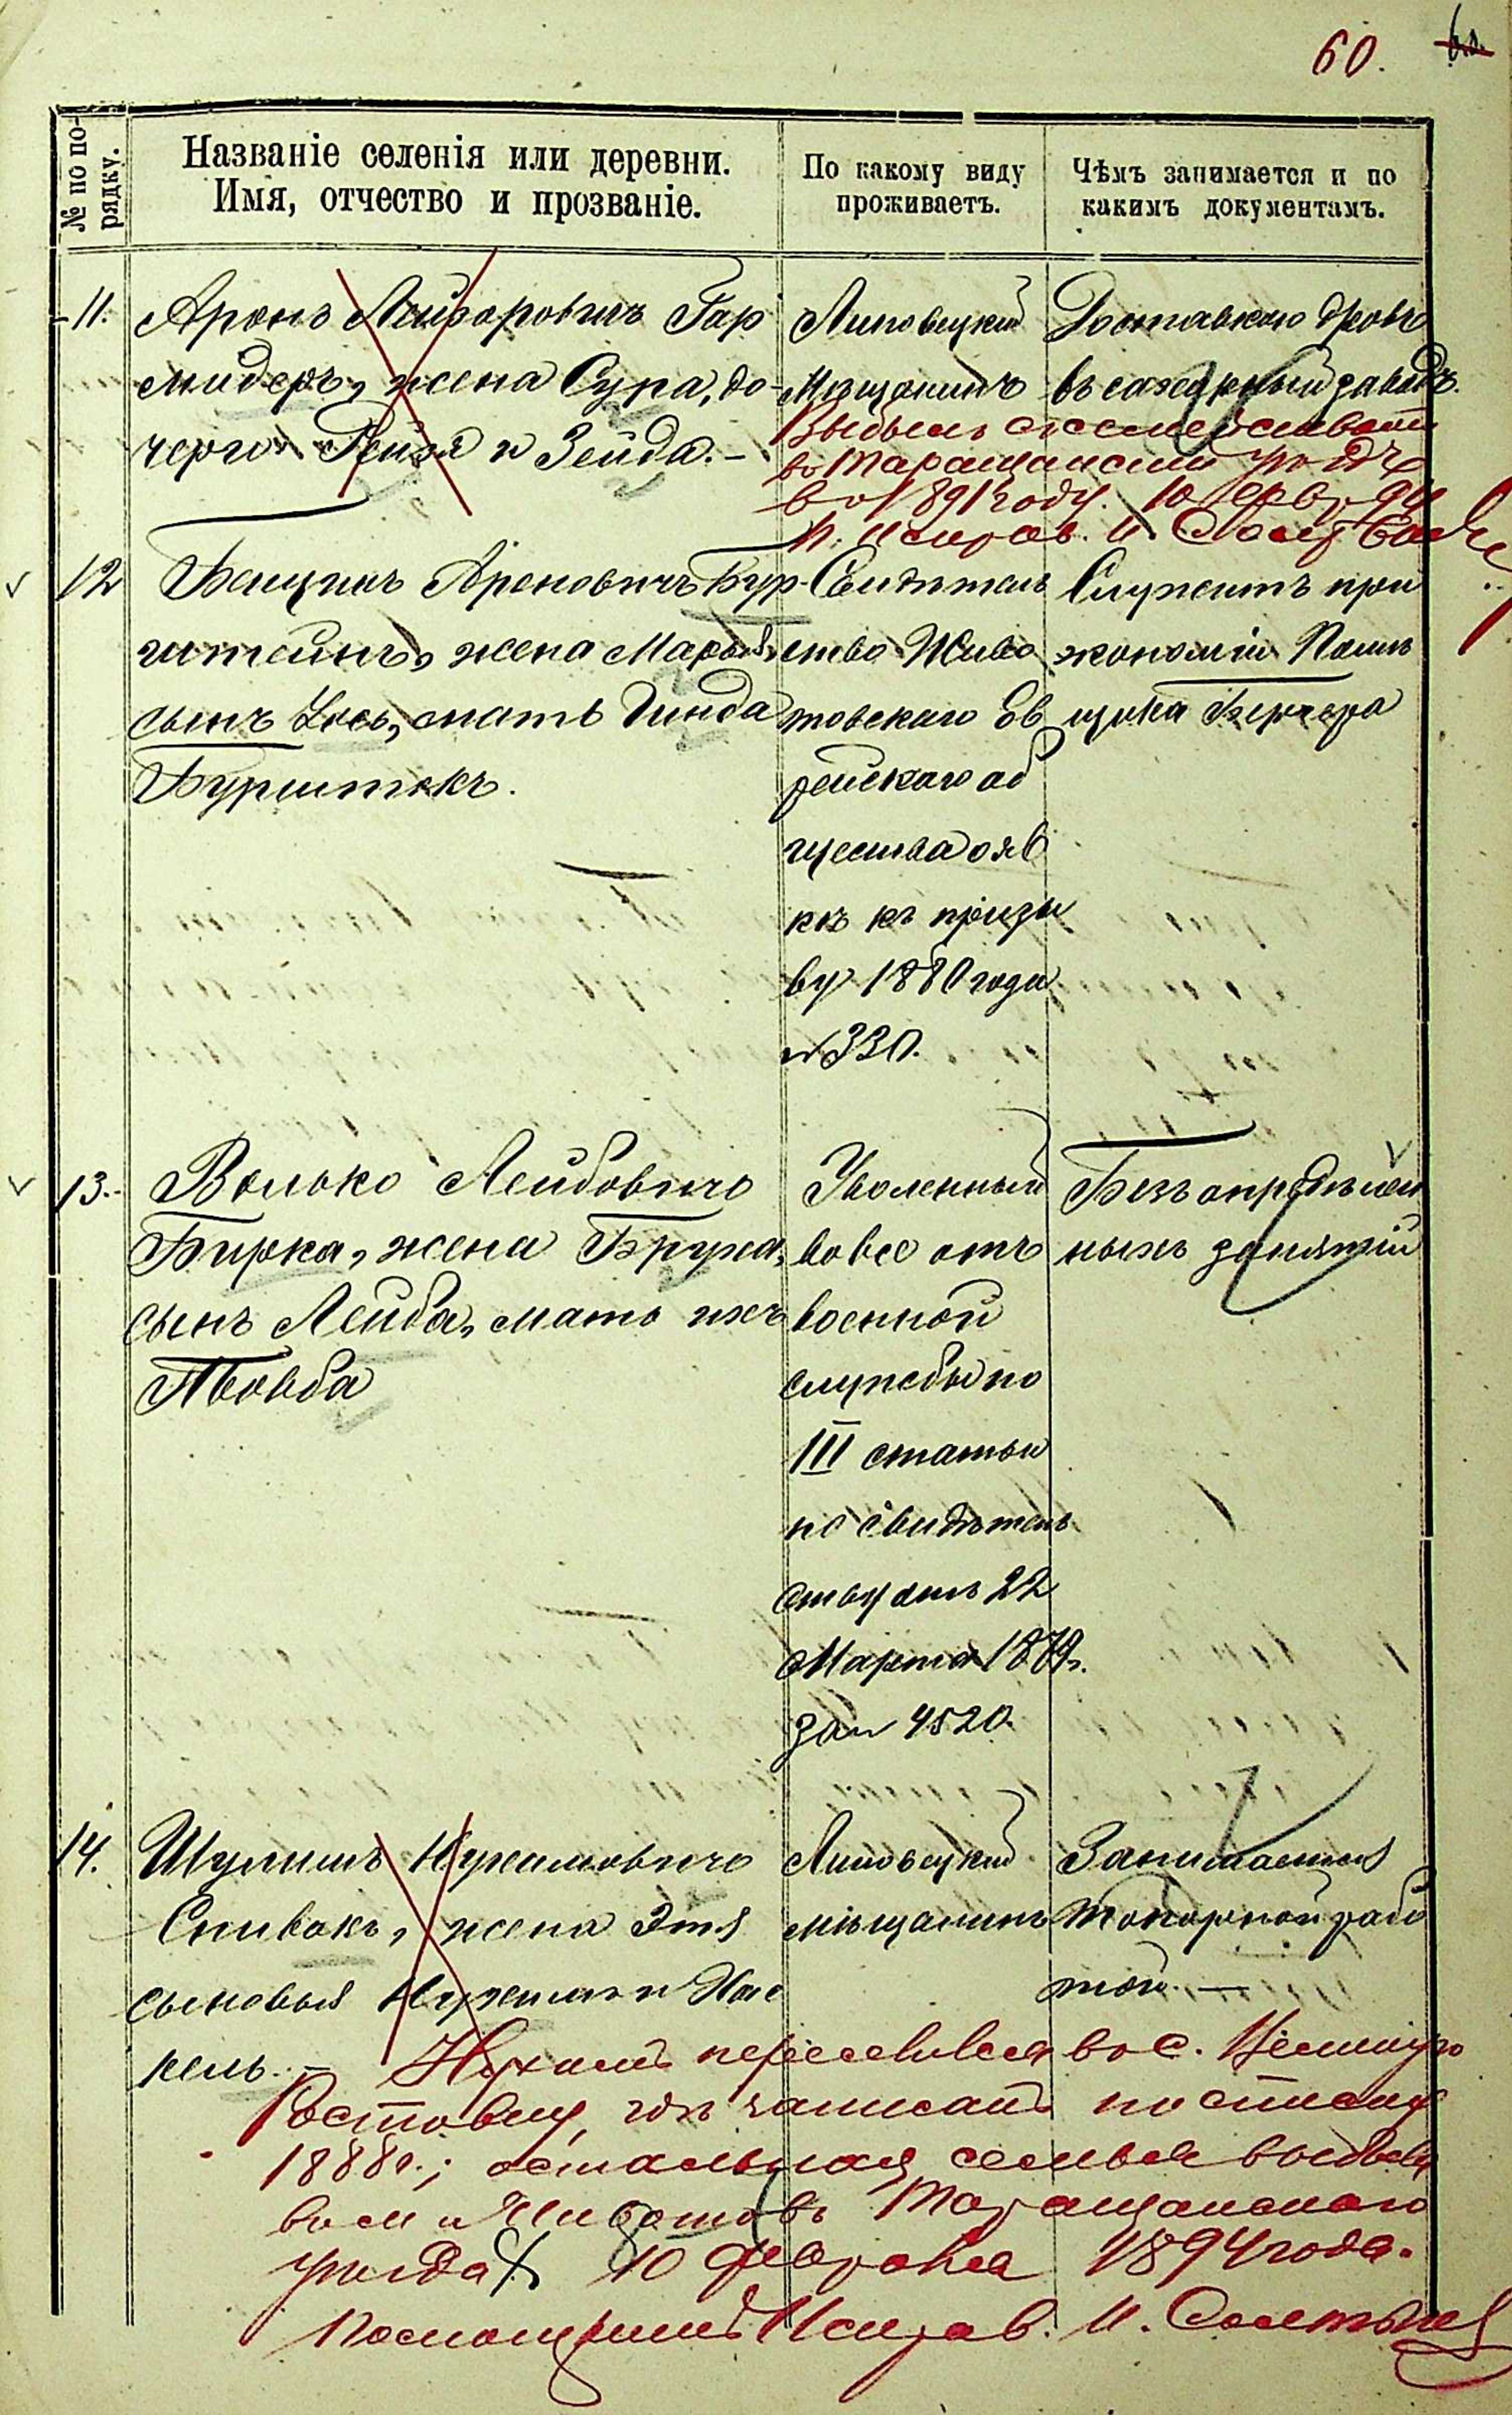 60.
№ по по-
рядку.
Названіе селенія или деревни.
Имя, отчество и прозваніе.
По какому виду
проживаетъ.
Чѣмъ занимается и по
какимъ документамъ.
11.
Аронъ Лейзоровичъ Гар
жена Сура, до-
чери Рейзя и Зейда.-
Липовецкій
Мѣщанинъ
Доставкою дровъ
въ сахарный заводъ.
Выбылъ
въ Таращанскій уѣздъ
въ 1891 году. 10 Февр. 94
П. Исправ. И.
12
Ароновичъ Бур
штейнъ, жена Марья,
сынъ Іось, мать Гинда
Бурштокъ.
Свидѣтель
ство Живо
товскаго Ев
рейскаго об
щества о яв
кѣ къ призы
ву 1880 года
№ 330.
Служитъ при
экономіи Помѣ
щика Бержера
13.
Волько Лейбовичъ
Бирка, жена Бруха,
сынъ Лейба, мать ихъ
Товба
Уволенный
вовсе отъ
военной
службы по
III статьи
по свидѣтель
ству отъ 22
Марта 1879г.
за № 4520.
Безъ опредѣлен
ныхъ занятій
14.
Шулимъ Нухимовичъ
Спивакъ, жена Этя
сыновья Нухимъ и Хас
кель.-
Липовецкій
мѣщанинъ
Занимается
Топорной рабо
той.-
Нухимъ переселился въ с.
Ростовку, гдѣ записанъ по списку
1888г.; остальная семья выбыла
въ м. Животовъ Таращанскаго
уѣзда. 10 Февраля 1894 года.
Помощникъ Исправ. И.